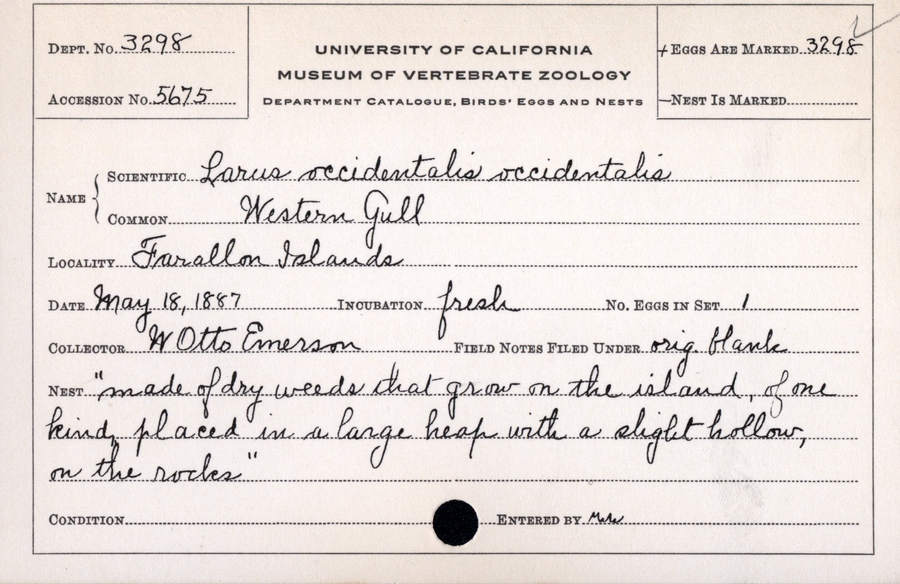 Dept. No. 3298
Accession No. 5675
UNIVERSITY OF CALIFORNIA
MUSEUM OF VERTEBRATE ZOOLOGY
Department Catalogue, Birds' Eggs and Nests
+ Eggs Are Marked 3298
—Nest Is Marked
Name
Scientific Larus occidentalis occidentalis
Common Western Gull
Locality Farallon Islands
Date May 18, 1887 Incubation fresh No. Eggs in Set 1
Collector W Otto Emerson Field Notes Filed Under orig. blank
Nest "made of dry weeds that grow on the island, of one
kind, placed in a large heap with a slight hollow,
on the rocks"
Condition Entered by